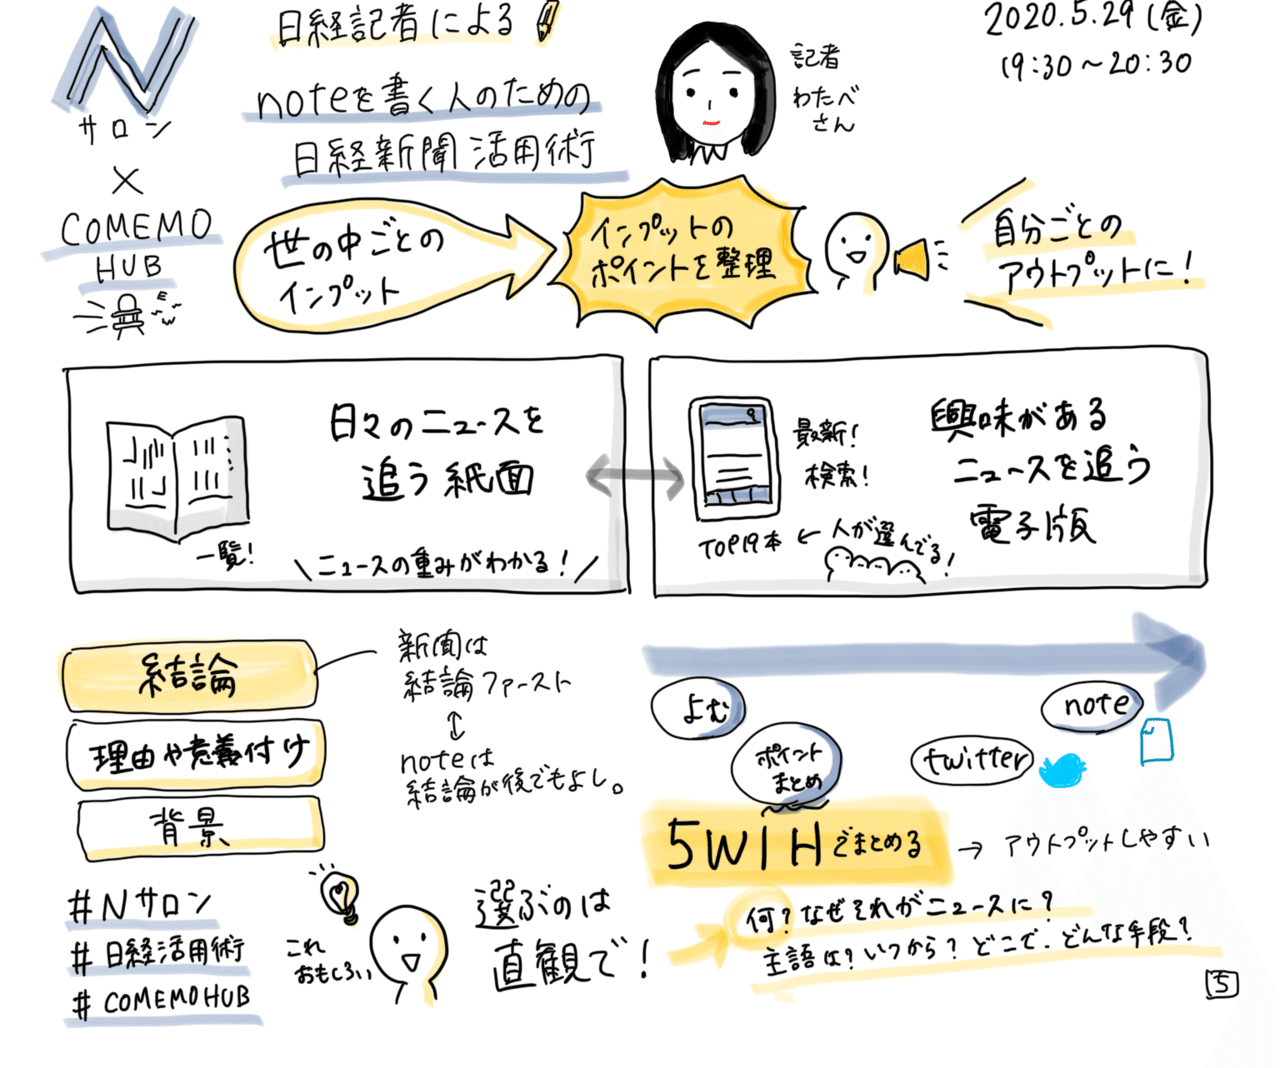 N
サロン
×
COMEMO
HUB
日経記者による
noteを書く人のための
日経新聞活用術
記者
わたべ
さん
2020.5.29(金)
19:30〜20:30
世の中ごとの
インプット
インプットの
ポイントを整理
自分ごとの
アウトプットに!
日々のニュースを
追う紙面
一覧!
\ニュースの重みがわかる!/
最新!
検索!
TOP19本 ← 人が選んでる!
興味がある
ニュースを追う
電子版
結論
理由や意義付け
背景
新聞は
結論ファースト
↕
noteは
結論が後でもよし。
よむ
ポイント
まとめ
twitter
note
5W1Hでまとめる
→ アウトプットしやすい
何?なぜそれがニュースに?
主語は?いつから?どこで.どんな手段?
#Nサロン
#日経活用術
#COMEMOHUB
これ
おもしろい
選ぶのは
直観で!
5